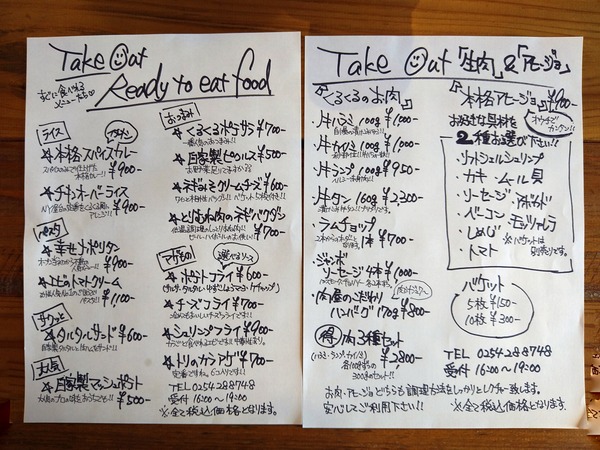 Take Out
Ready to eat food
すぐに食べれる
メニューたち
ライス
イチオシ
☆本格スパイスカレー
¥900-
☆チキンオーバーライス
¥900-
パスタ
☆幸せナポリタン
¥900-
☆エビのトマトクリーム
¥1100-
サクッと
☆タルタルサンド ¥600-
大人気
☆自家製マッシュポテト
¥500-
おつまみ
☆くるくるポテサラ ¥700-
☆自家製ピクルス ¥500-
☆ネギみそクリームチーズ ¥600-
☆とりむね肉のネギバクダン
¥700-
アゲもの
選べるソース
☆ポテトフライ ¥600-
☆チーズフライ ¥700-
☆シュリンプフライ ¥900-
☆トリのカラアゲ ¥700-
TEL 0254288748
受付 16:00〜19:00
※全て税込価格となります。
Take Out 「生肉」&「アヒージョ」
『くるくるのお肉』
・牛ハラミ 100g ¥1,000-
・牛カイノミ 100g ¥1,000-
・牛ランプ 100g ¥950-
・牛タン 160g ¥2,300-
・ラムチョップ
1本 ¥700-
・ジャンボ
ソーセージ 4本 ¥1,000-
・肉屋のこだわり
ハンバーグ 170g ¥800-
得 肉3種セット
(ハラミ・ランプ・カイノミ) ¥2800-
各100gずつの
300gのセット!!
『本格アヒージョ』 ¥900-
オウチで
カンタン!!
お好きな具材を
2種お選び下さい!
・ソフトシェルシュリンプ
・カキ ・ムール貝
・ソーセージ ・アボカド
・ベーコン ・モッツァレラ
・しめじ
・トマト
※バケットは
別売りです。
バケット
5枚 ¥150-
10枚 ¥300-
TEL 0254288748
受付 16:00〜19:00
お肉・アヒージョどちらも調理方法をしっかりとレクチャー致します。
安心してご利用下さい!!
※全て税込価格となります。